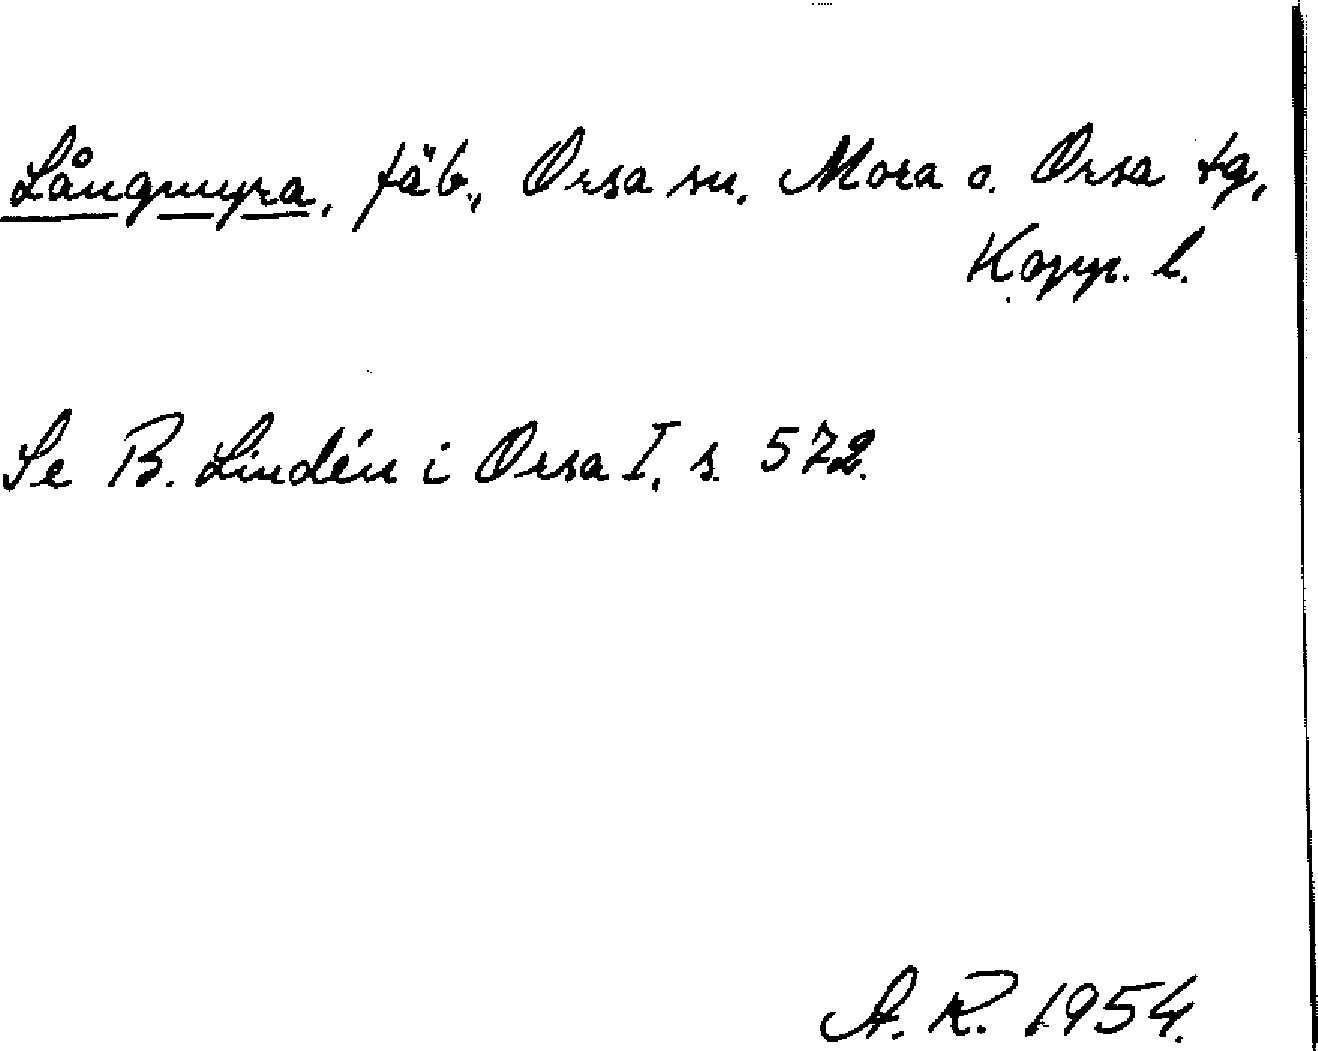 Långmyra, fäb., Orsa sn, Mora o. Orsa tg,
Kopp. l.
Se B. Lindén i Orsa I, s. 572.
A. R. 1954.